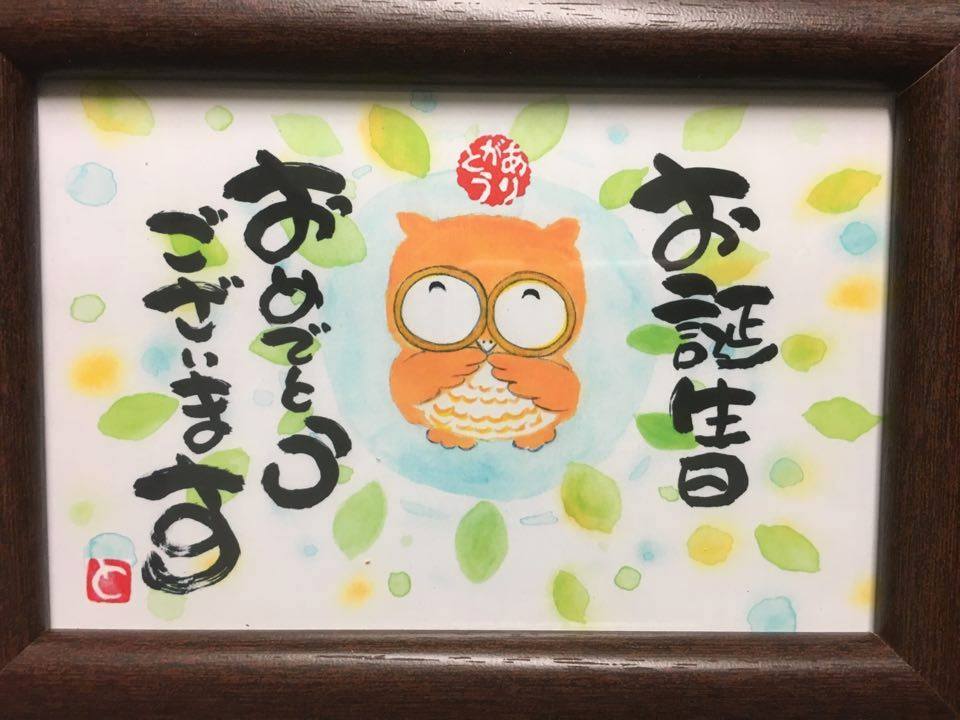 お誕生日
ありがとう
おめでとう
ございます
と